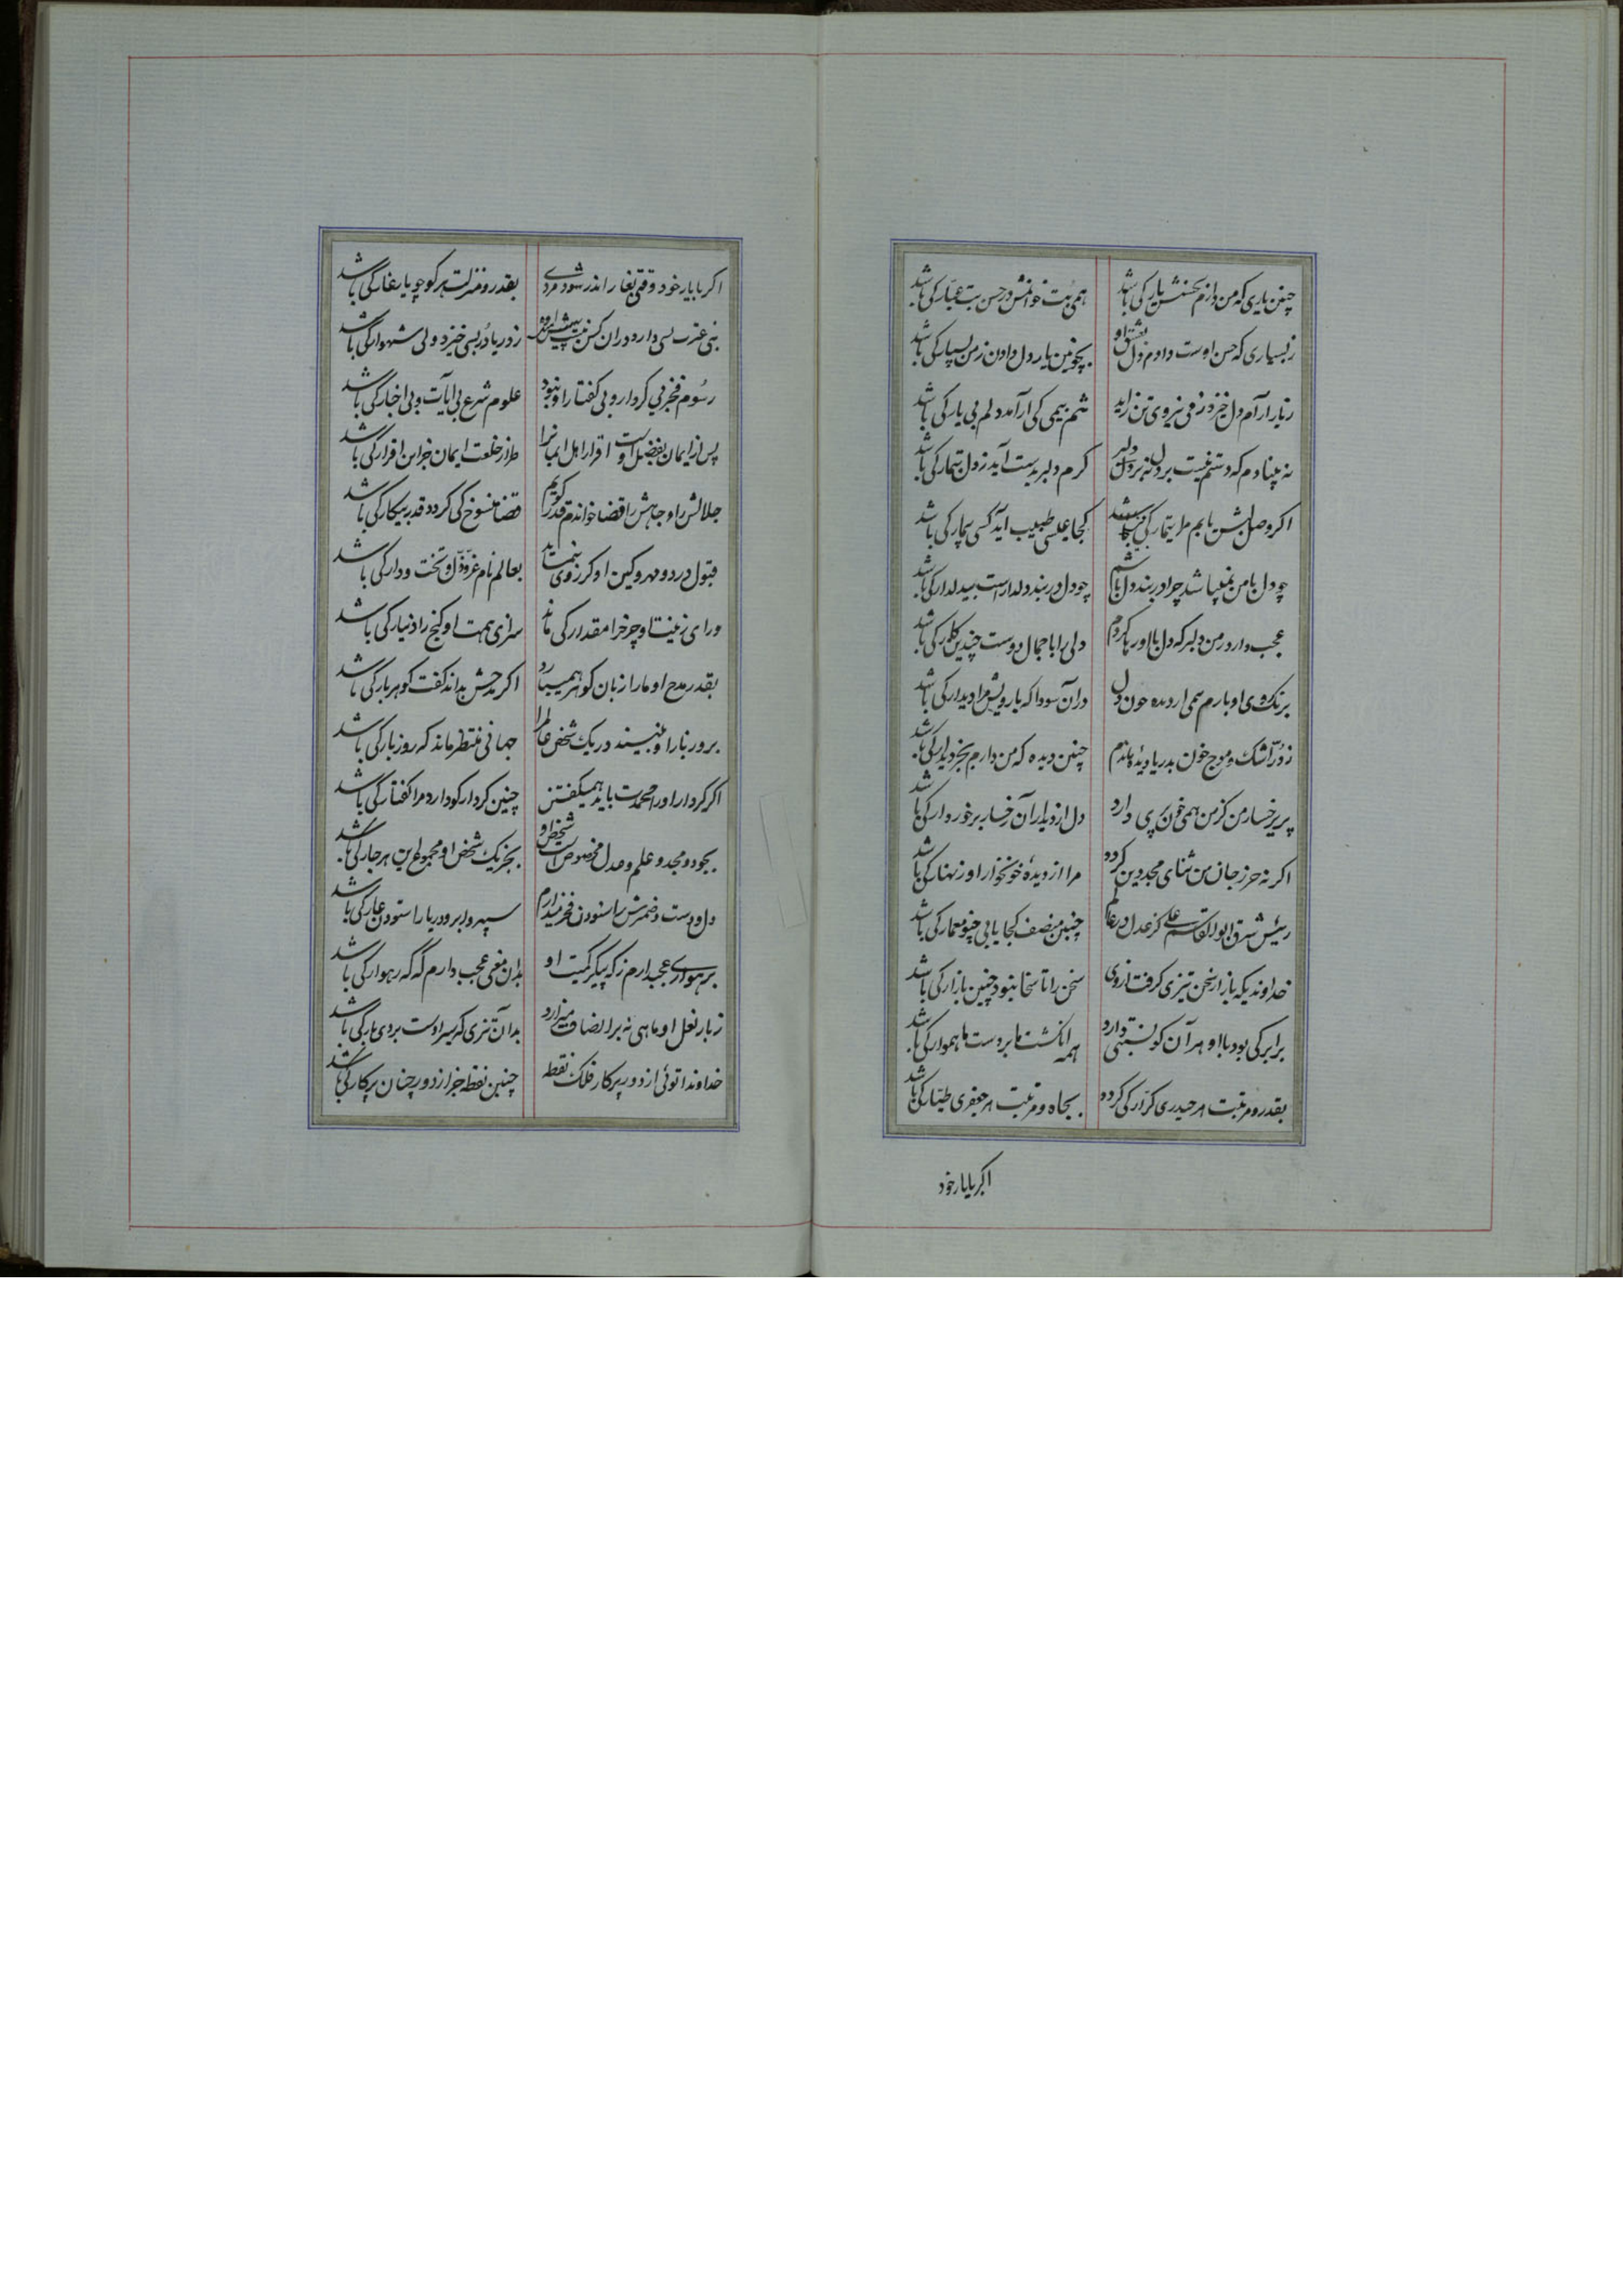 چنین یاری که من دارم بحسنش یار کی باشد همی بت خوانمش در حسن بت عیار کی باشد
ز بسیاری که حسن اوست دادم دل بعشق او بجز من یار دل دادن ز من بسیار کی باشد
ز یار آرام دل خیزد ز می نیروی تن زاید منم بی می کی آرامد دلم بی یار کی باشد
نه بینا دم که دستم نیست بر دل نه بر دلبر کرم دلبر بدست آید ز دل تیمار کی باشد
اگر وصل لبش یابم مرا تیمار کی باشد کجا عیسی طبیب آید کسی بیمار کی باشد
چو دل با من نمیباشد چرا در بند دل باشم چو دل در بند دلدارست بیدلدار کی باشد
عجب دارد ز من دلبر که دل با او رها کردم دلی را با جمال دوست چندین کار کی باشد
برنگ روی او بارم همی از دیده خون دل در آن سودا که با رویش مرا دیدار کی باشد
ز در اشک و موج خون بدریا دیده ماندم چنین دیده که من دارم بجز دیدار کی باشد
پریرخسار من کز من همی خون پری دارد دل از دیدار آن رخسار برخوردار کی باشد
اگر نه حرز جان من ثنای مجد دین کردد مرا از دیدهٔ خونخوار او زنهار کی باشد
رئیس شرق ابوالقاسم علی کز عدل در عالم چنین منصف کجا یابی چنو معمار کی باشد
خداوندیکه بازار سخن تیزی گرفت از وی سخن را تا سخا نبود چنین بازار کی باشد
برابر کی بود با او هر آن کو نسبتی دارد همه انگشت ما بر دست ما هموار کی باشد
بقدر و مرتبت هر حیدری کرار کی گردد بجاه و مرتبت هر جعفری طیار کی باشد
اگر با یار خود
اگر با یار خود وقتی بغار اندر شود مردی بقدر و منزلت هر کو چو یار غار کی باشد
بنی عترت بسی دارد در آن کس نیست پیش او ز دریا در بسی خیزد ولی شهوار کی باشد
رسوم فخر بی کردار و بی گفتار او نبود علوم شرع بی آیات و بی اخبار کی باشد
پس از ایمان بفضل اوست اقرار اهل ایمانرا طراز خلعت ایمان جز این اقرار کی باشد
جلالش را و جاهش را قضا خواندم قدر گویم قضا منسوخ کی گردد قدر بیکار کی باشد
قبول درد و مهر و کین او گر روی ننماید بعالم نام عز و ذل و تخت و دار کی باشد
ورای زینت او چرخ را مقدار کی ماند سزای همت او گنج را دینار کی باشد
بقدر مدح او ما را زبان گوهر همیبارد اگر مدحش نداند گفت گوهربار کی باشد
برور بار او بینند در یک شخص عالم را جهانی منتظر ماند که روز بار کی باشد
اگر کردار او را محمدت باید همیگفتن چنین کردار کو دارد مرا گفتار کی باشد
بجود و مجد و علم و عدل مخصوص است شخص او بجز یک شخص او مجموع این هر چار کی باشد
دل و دست و ضمیرش را ستودن فخر میدارم سپهر و ابر و دریا را ستودن عار کی باشد
برهواری عجب دارم ز که پیکر کمیت او بدان معنی عجب دارم که که رهوار کی باشد
ز بار نعل او ماهی نه بر انصاف میزارد بدان تیزی که سیر اوست بر وی بار کی باشد
خداوندا توئی از دور پرگار فلک نقطه چنین نقطه جز از دور چنان پرگار کی باشد